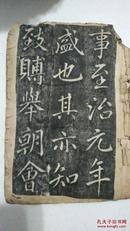 事至治元年
盛也其亦知
致賻舉朝會